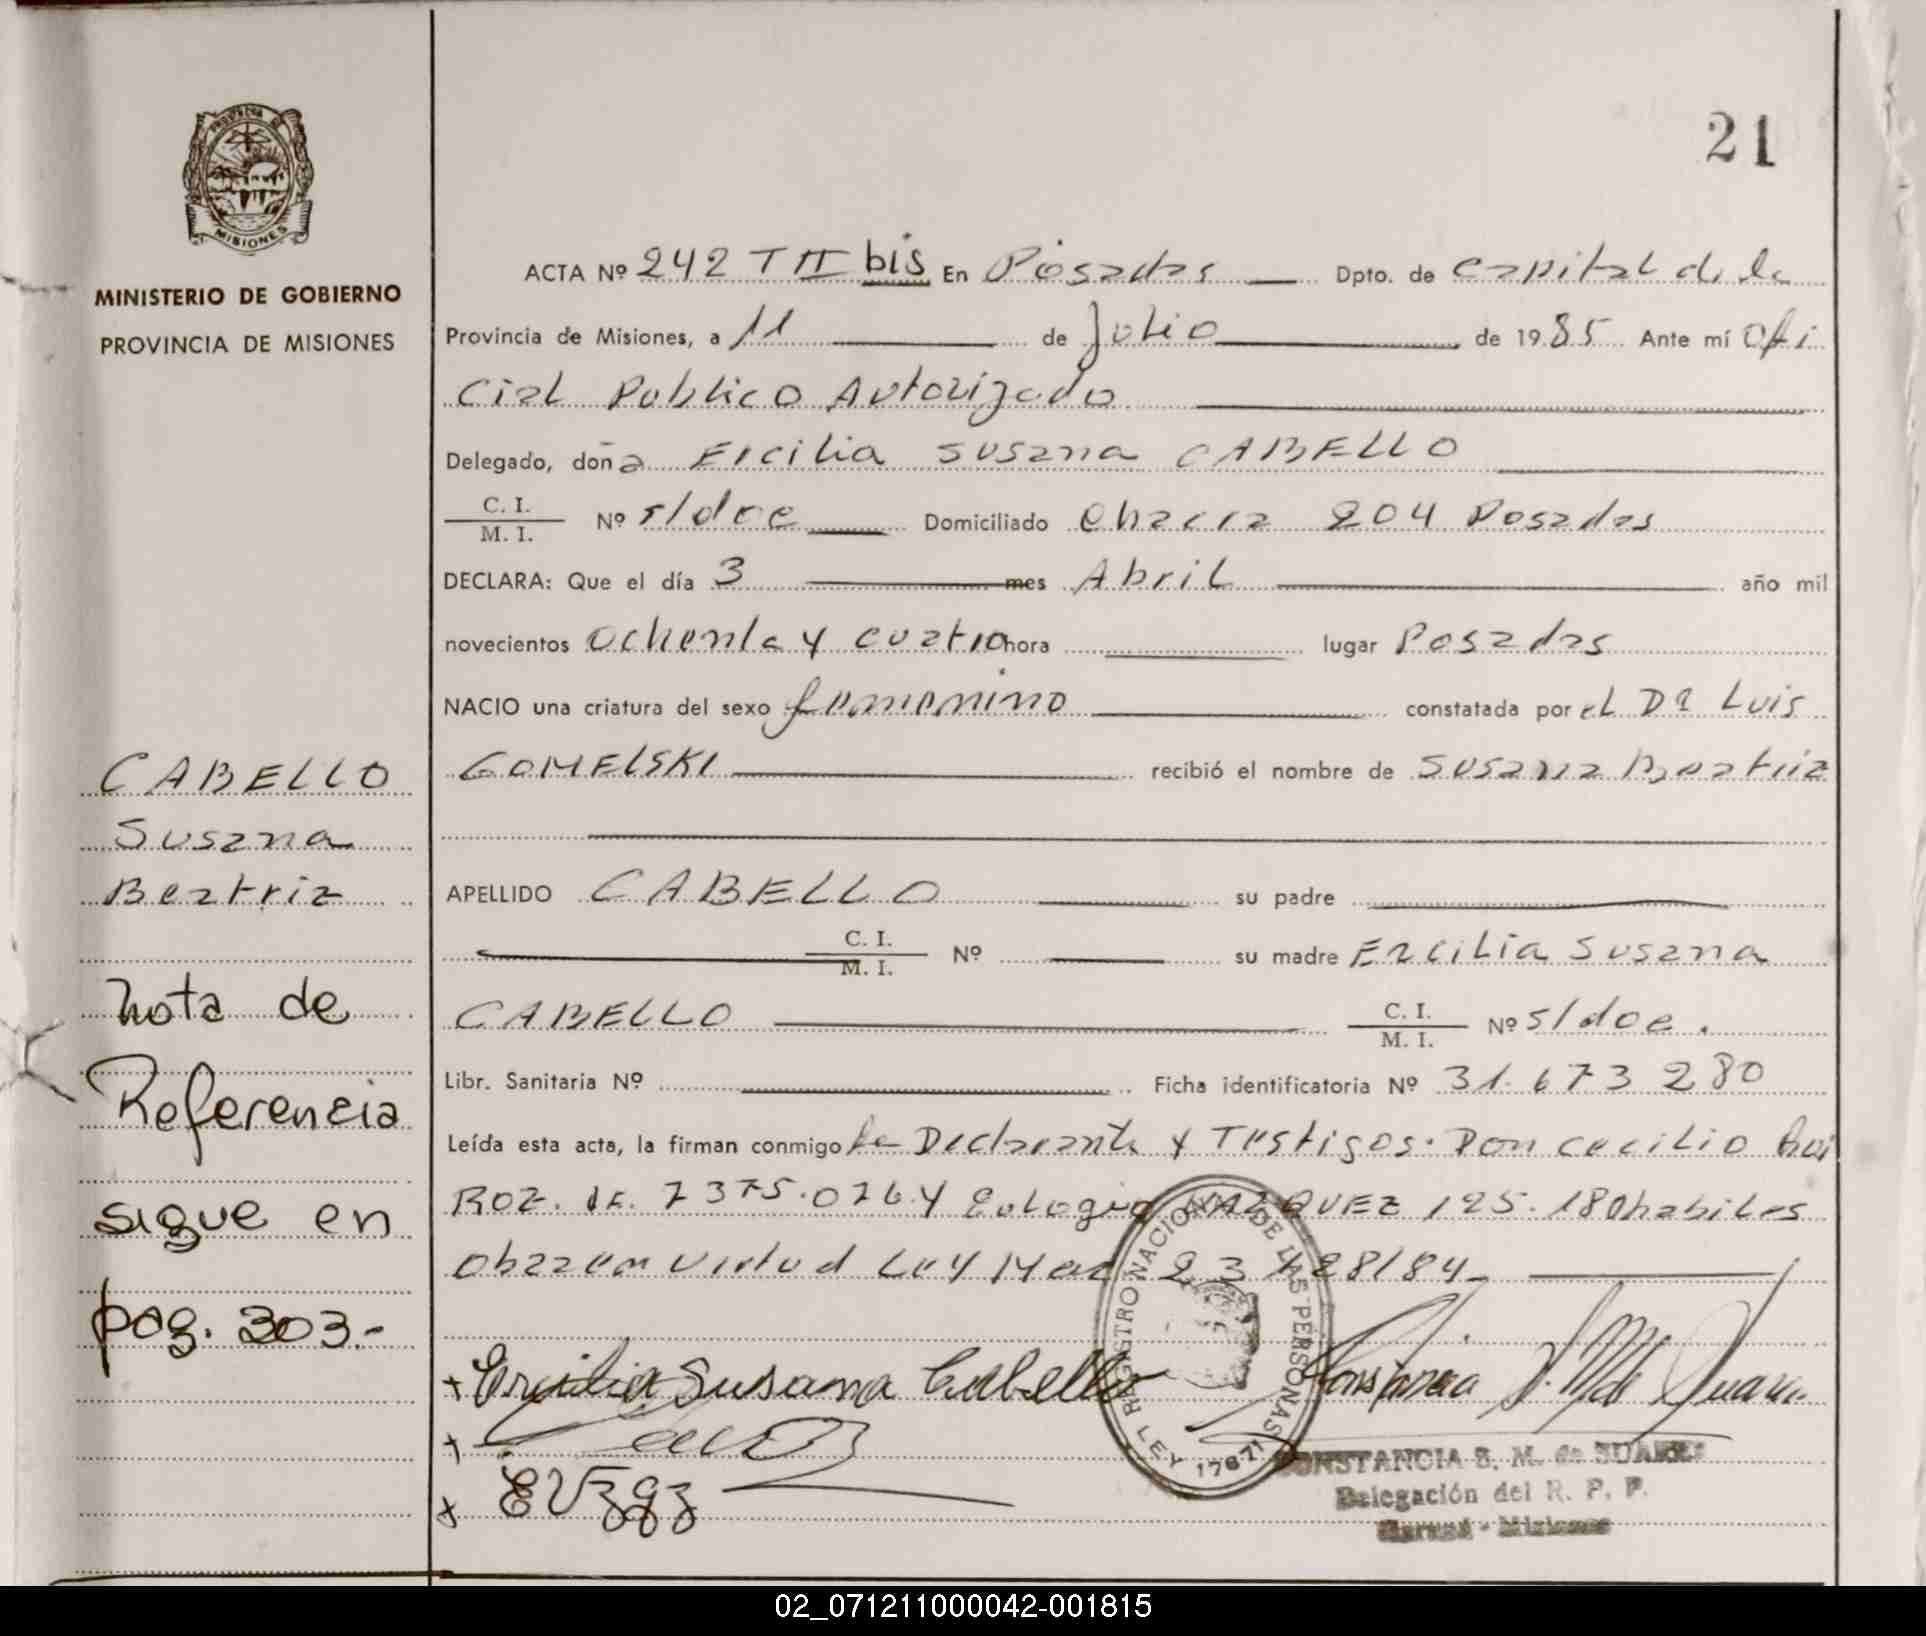 PROVINCIA DE
MISIONES
MINISTERIO DE GOBIERNO
PROVINCIA DE MISIONES
CABELLO
Susana
Beatriz
Nota de
Referencia
sigue en
pag. 303.-
21
ACTA Nº 242 T II bis En Posadas Dpto. de Capital de la
Provincia de Misiones, a 11 de Julio de 1985 Ante mí Ofi
cial Publico Autorizado
Delegado, doña Ercilia Susana CABELLO
C. I.
M. I. Nº s/doc Domiciliado Chacra 204 Posadas
DECLARA: Que el día 3 mes Abril año mil
novecientos ochenta y cuatro hora lugar Posadas
NACIO una criatura del sexo femenino constatada por el Dr Luis
GOMELSKI recibió el nombre de Susana Beatriz
APELLIDO CABELLO su padre
C. I.
M. I. Nº su madre Ercilia Susana
CABELLO C. I.
M. I. Nº s/doc.
Libr. Sanitaria Nº Ficha identificatoria Nº 31.673 280
Leída esta acta, la firman conmigo la Declarante y Testigos. Don Cecilio
ROZ. 7375.076 y Eulogio VAZQUEZ 125.180 habiles
Obran en virtud Ley Nac 23 128/84
Ercilia Susana Cabello
REGISTRO NACIONAL DE LAS PERSONAS
LEY 17671
CONSTANCIA S. M. de SUAREZ
Delegación del R. P. P.
Misiones
02_071211000042-001815